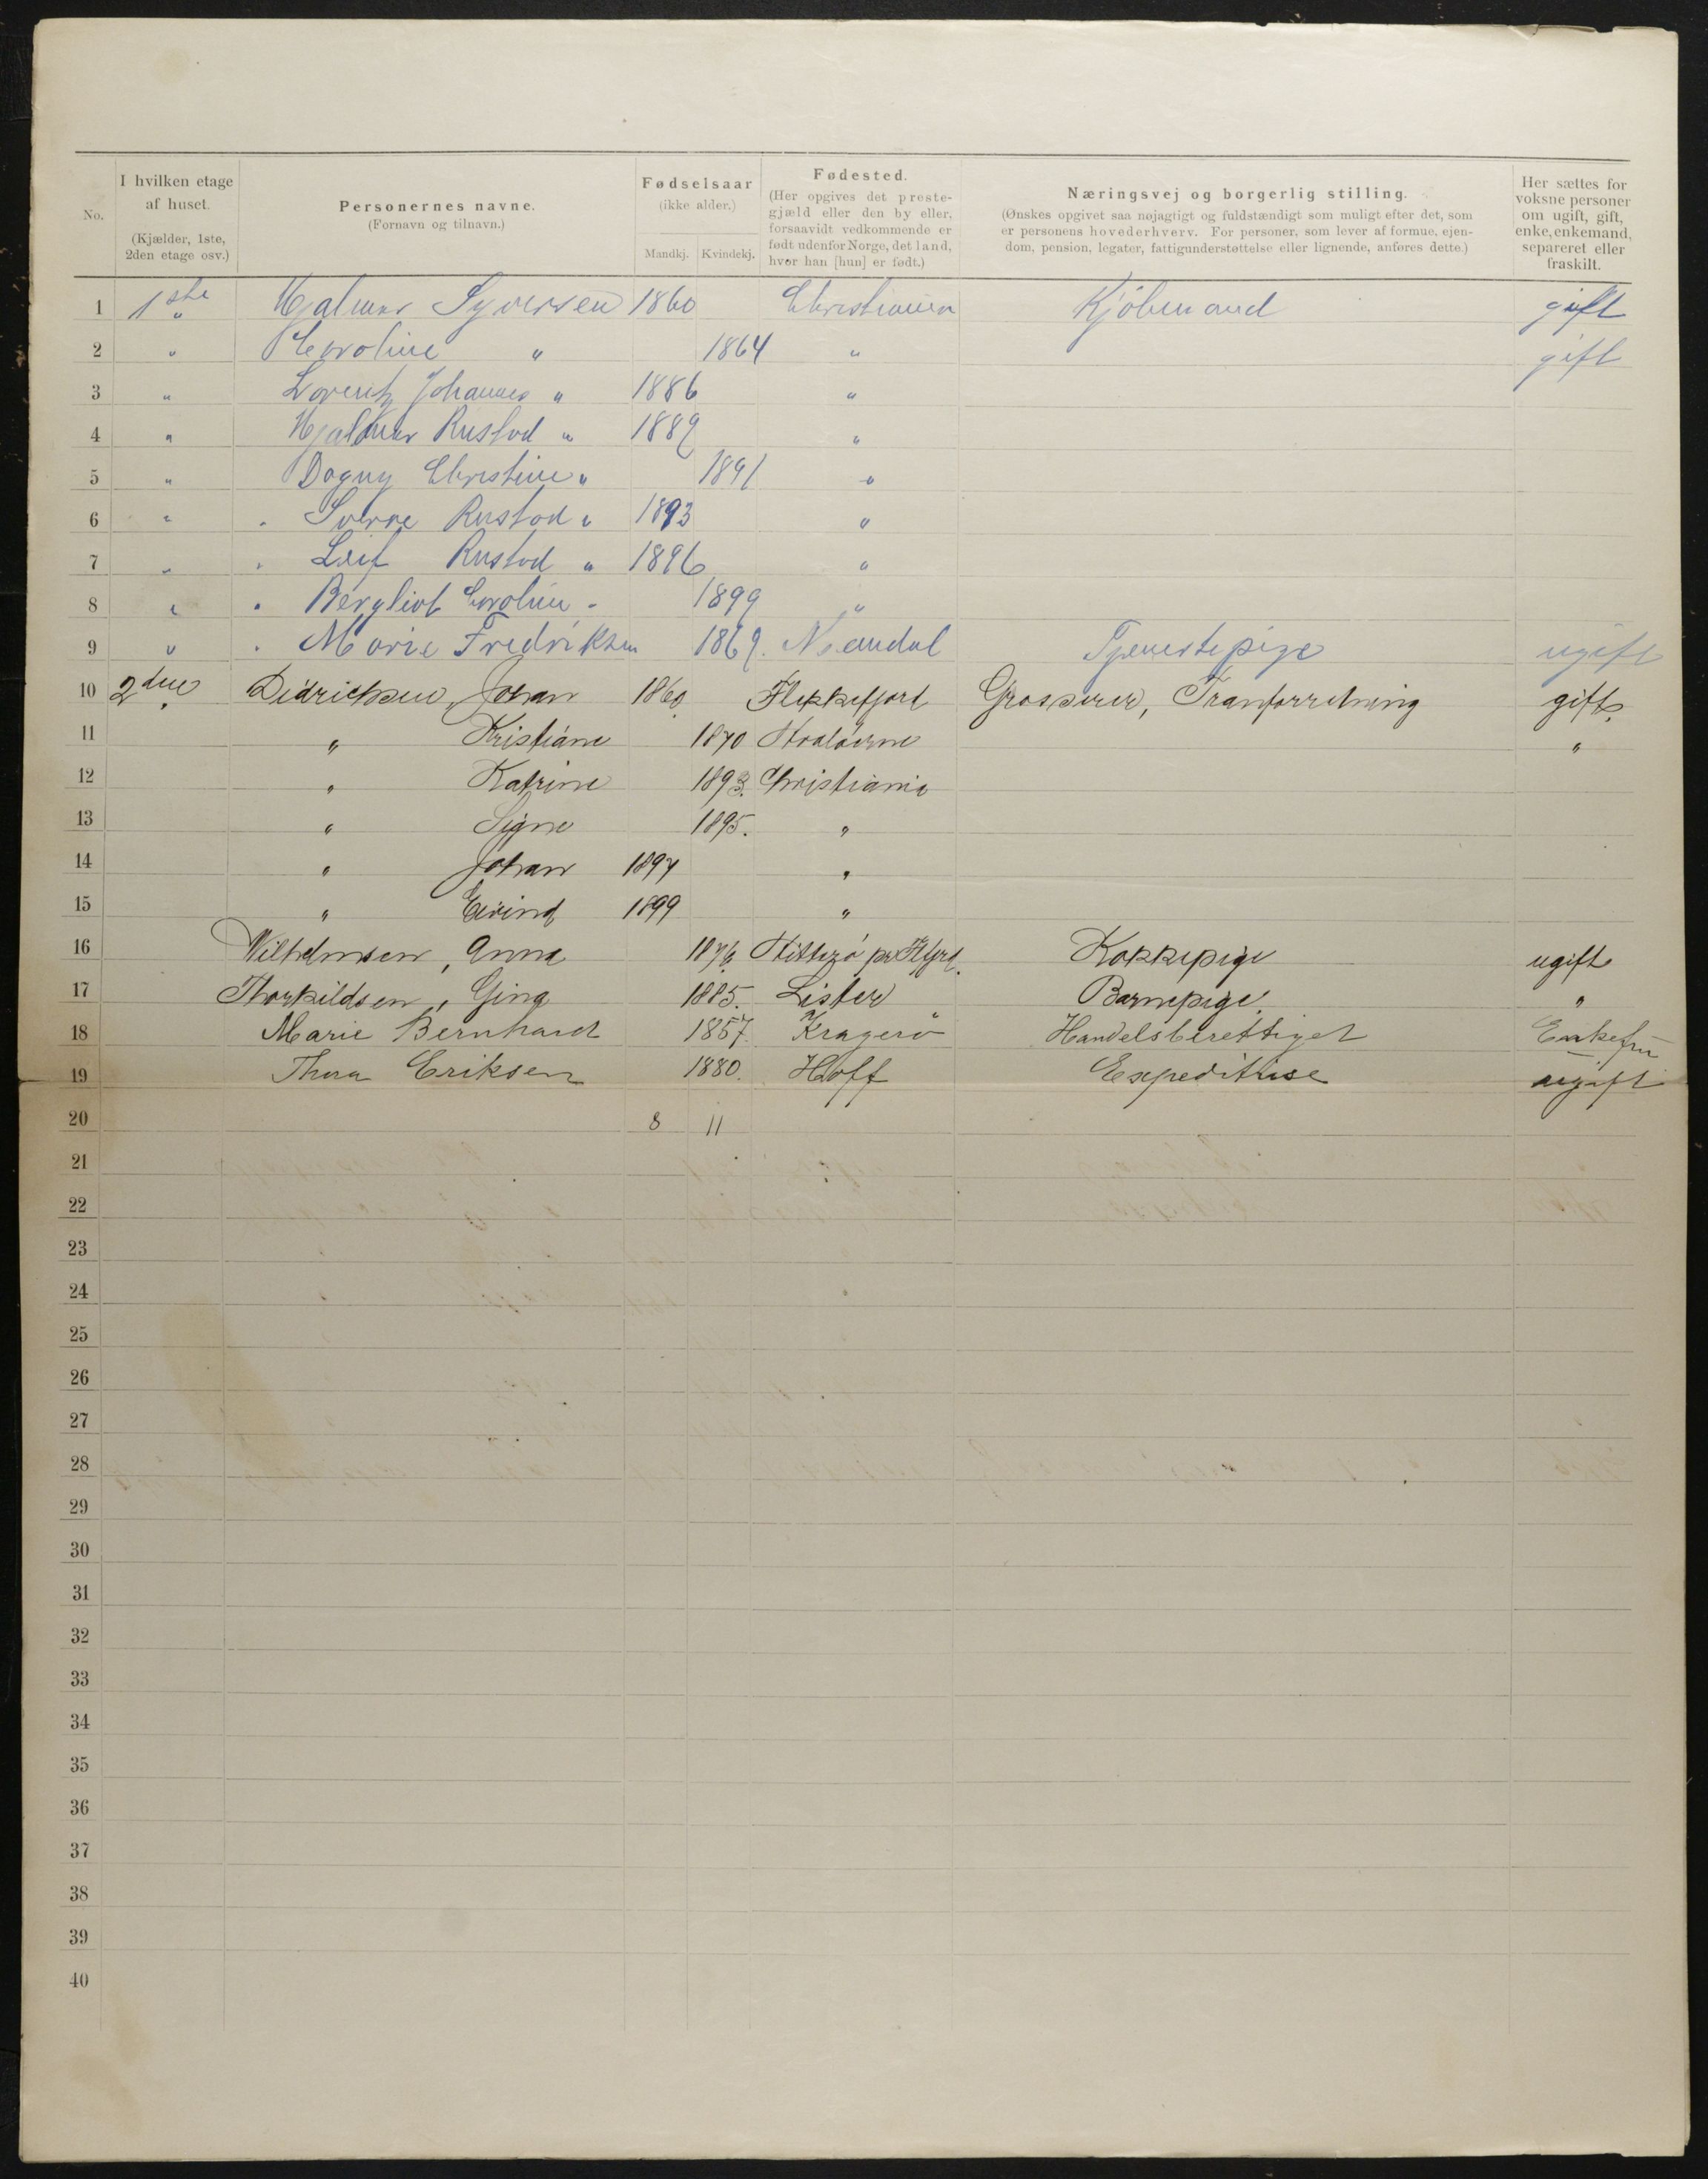 No.
I hvilken etage af huset. (Kjælder, 1ste, 2den etage osv.)
Personernes navne. (Fornavn og tilnavn.)
Fødselsaar (ikke alder.) Mandkj. Kvindekj.
Fødested. (Her opgives det prestegjæld eller den by eller, forsaavidt vedkommende er født udenfor Norge, det land, hvor han [hun] er født.)
Næringsvej og borgerlig stilling. (Ønskes opgivet saa nøjagtigt og fuldstændigt som muligt efter det, som er personens hovederhverv. For personer, som lever af formue, ejendom, pension, legater, fattigunderstøttelse eller lignende, anføres dette.)
Her sættes for voksne personer om ugift, gift, enke, enkemand, separeret eller fraskilt.
1 1ste Hjalmar Syversen 1860 Christiania Kjøbmand gift
2 " Caroline " 1864 " gift
3 " Lorentz Johannes " 1886 "
4 " Hjalmar Rustad " 1889 "
5 " Dagny Christine " 1891 "
6 " Sverre Rustad " 1893 "
7 " Leif Rustad " 1896 "
8 " Bergliot Caroline " 1899 "
9 " Marie Fredriksen 1869. Mandal Tjenestepige ugift
10 2den Didrichsen, Johan 1860 Flekkefjord Grosserer, Tranforretning gift
11 " Kristiane 1870 "
12 " Katrine 1893. Christiania
13 " Signe 1895. "
14 " Johan 1897 "
15 " Eivind 1899 "
16 Wilhelmsen, Anna 1876 Hitterø pr Flfjrd. Kokkepige ugift
17 Thorkildsen, Gina 1885. Lister Barnepige "
18 Marie Bernhard 1857 Kragerø Handelsberettiget Enkefru
19 Thora Eriksen 1880. Hoff Expeditrise ugift
20 8 11
21
22
23
24
25
26
27
28
29
30
31
32
33
34
35
36
37
38
39
40